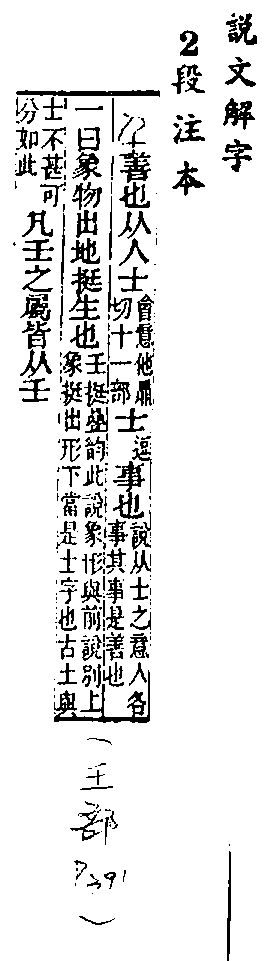 說文解字
2段注本
善也从人士會意他鼎切十一部士逗事也說从士之意人各事其事是善也
一曰象物出地挺生也壬挺曡韵此說象形與前說別上象挺出形下當是土字也古土與
士不甚可分如此凡壬之屬皆从壬
(王部 P391)